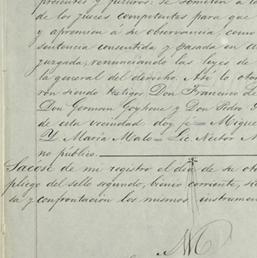 procentes y juraron. Se someten á l
de los jueces competentes para que
y apremien á su observancia, como
sentencia consentida y pasada en a
juzgada, renunciando las leyes de
la general del derecho. Así lo oto
ron siendo testigos Don Francisco Le
Don German Goyhene y Don Pedro
de esta vecindad doy fe Migue
Y Maria Malo - Lic. Nestor M
no público.
Sacose de mi registro el dia de su oto
pliego del sello segundo, bienio corriente, si
sa y confrontacion los mismos instrumen